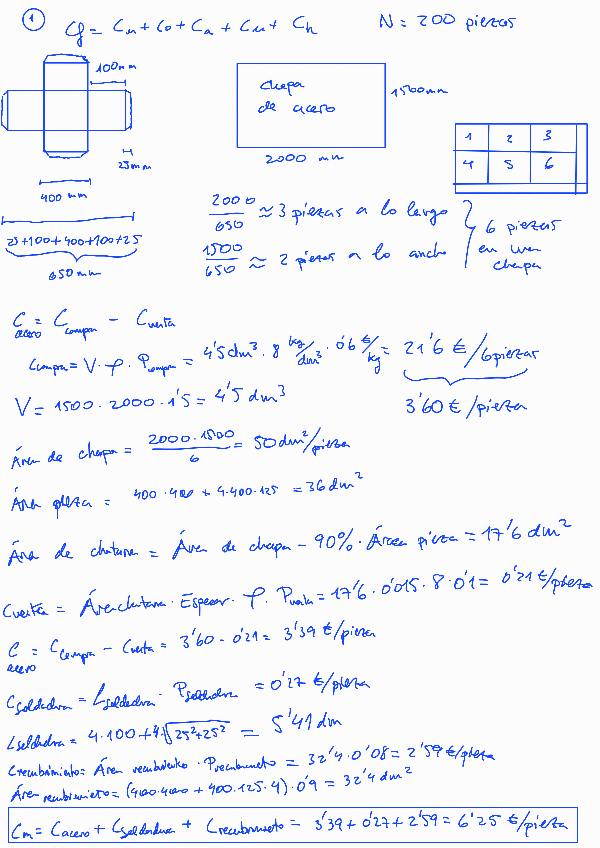 1 Cf = Cm + Co + Ca + Cu + Ch N = 200 piezas
100mm
chapa
de acero
1500mm
2000 mm
1 2 3
4 5 6
25mm
400 mm
25+100+400+100+25
650mm
2000/650 ≈ 3 piezas a lo largo
1500/650 ≈ 2 piezas a lo ancho
6 piezas
en una
chapa
C acero = C compra - C venta
C compra = V · ρ · P compra = 4'5 dm³ · 8 kg/dm³ · 0'6 €/kg = 21'6 €/6 piezas
3'60 €/pieza
V = 1500 · 2000 · 1'5 = 4'5 dm³
Área de chapa = 2000·1500/6 = 50 dm²/pieza
Área pieza = 400·400 + 4·400·125 = 36 dm²
Área de chatarra = Área de chapa - 90% · Área pieza = 17'6 dm²
C venta = Área chatarra · Espesor · ρ · P venta = 17'6 · 0'015 · 8 · 0'1 = 0'21 €/pieza
C acero = C compra - C venta = 3'60 - 0'21 = 3'39 €/pieza
C soldadura = L soldadura · P soldadura = 0'27 €/pieza
L soldadura = 4·100 + 4√25²+25² = 5'41 dm
C recubrimiento = Área recubrimiento · P recubrimiento = 32'4 · 0'08 = 2'59 €/pieza
Área recubrimiento = (400·400 + 400·125·4) · 0'9 = 32'4 dm²
Cm = C acero + C soldadura + C recubrimiento = 3'39 + 0'27 + 2'59 = 6'25 €/pieza